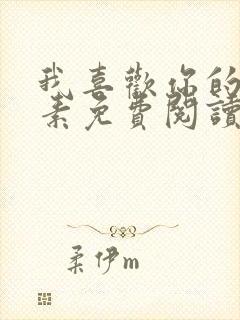 我喜歡你的
素免費閱讀
柔伊m